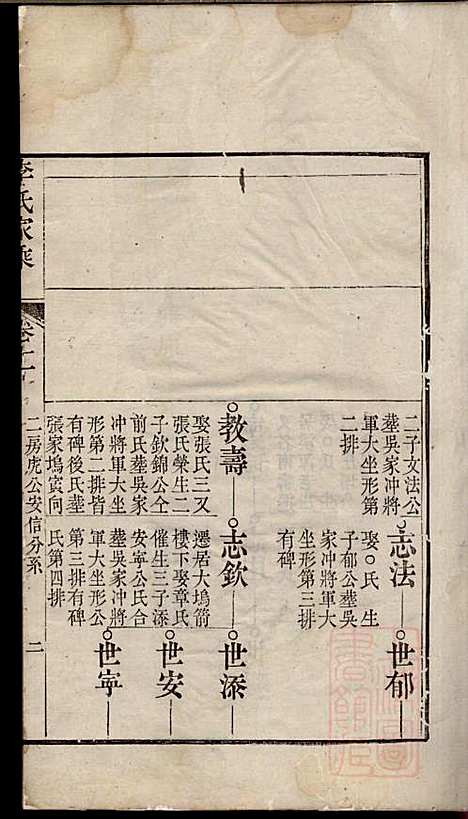 二子文法公
葬吳家冲將
軍大坐形第
二排
志法
娶○氏生
子郁公葬吳
家冲將軍大
坐形第三排
有碑
世郁
教壽
娶張氏三又
張氏榮生二
子欽錦公仝
前氏葬吳家
冲將軍大坐
形第二排皆
有碑後氏葬
張家塢寅向
志欽
遷居大塢箭
樓下娶章氏
催生三子添
安寧公氏合
葬吳家冲將
軍大坐形公
第三排有碑
氏第四排
世添
世安
世寧
李氏家乘
卷十一
二房虎公安信分系
二